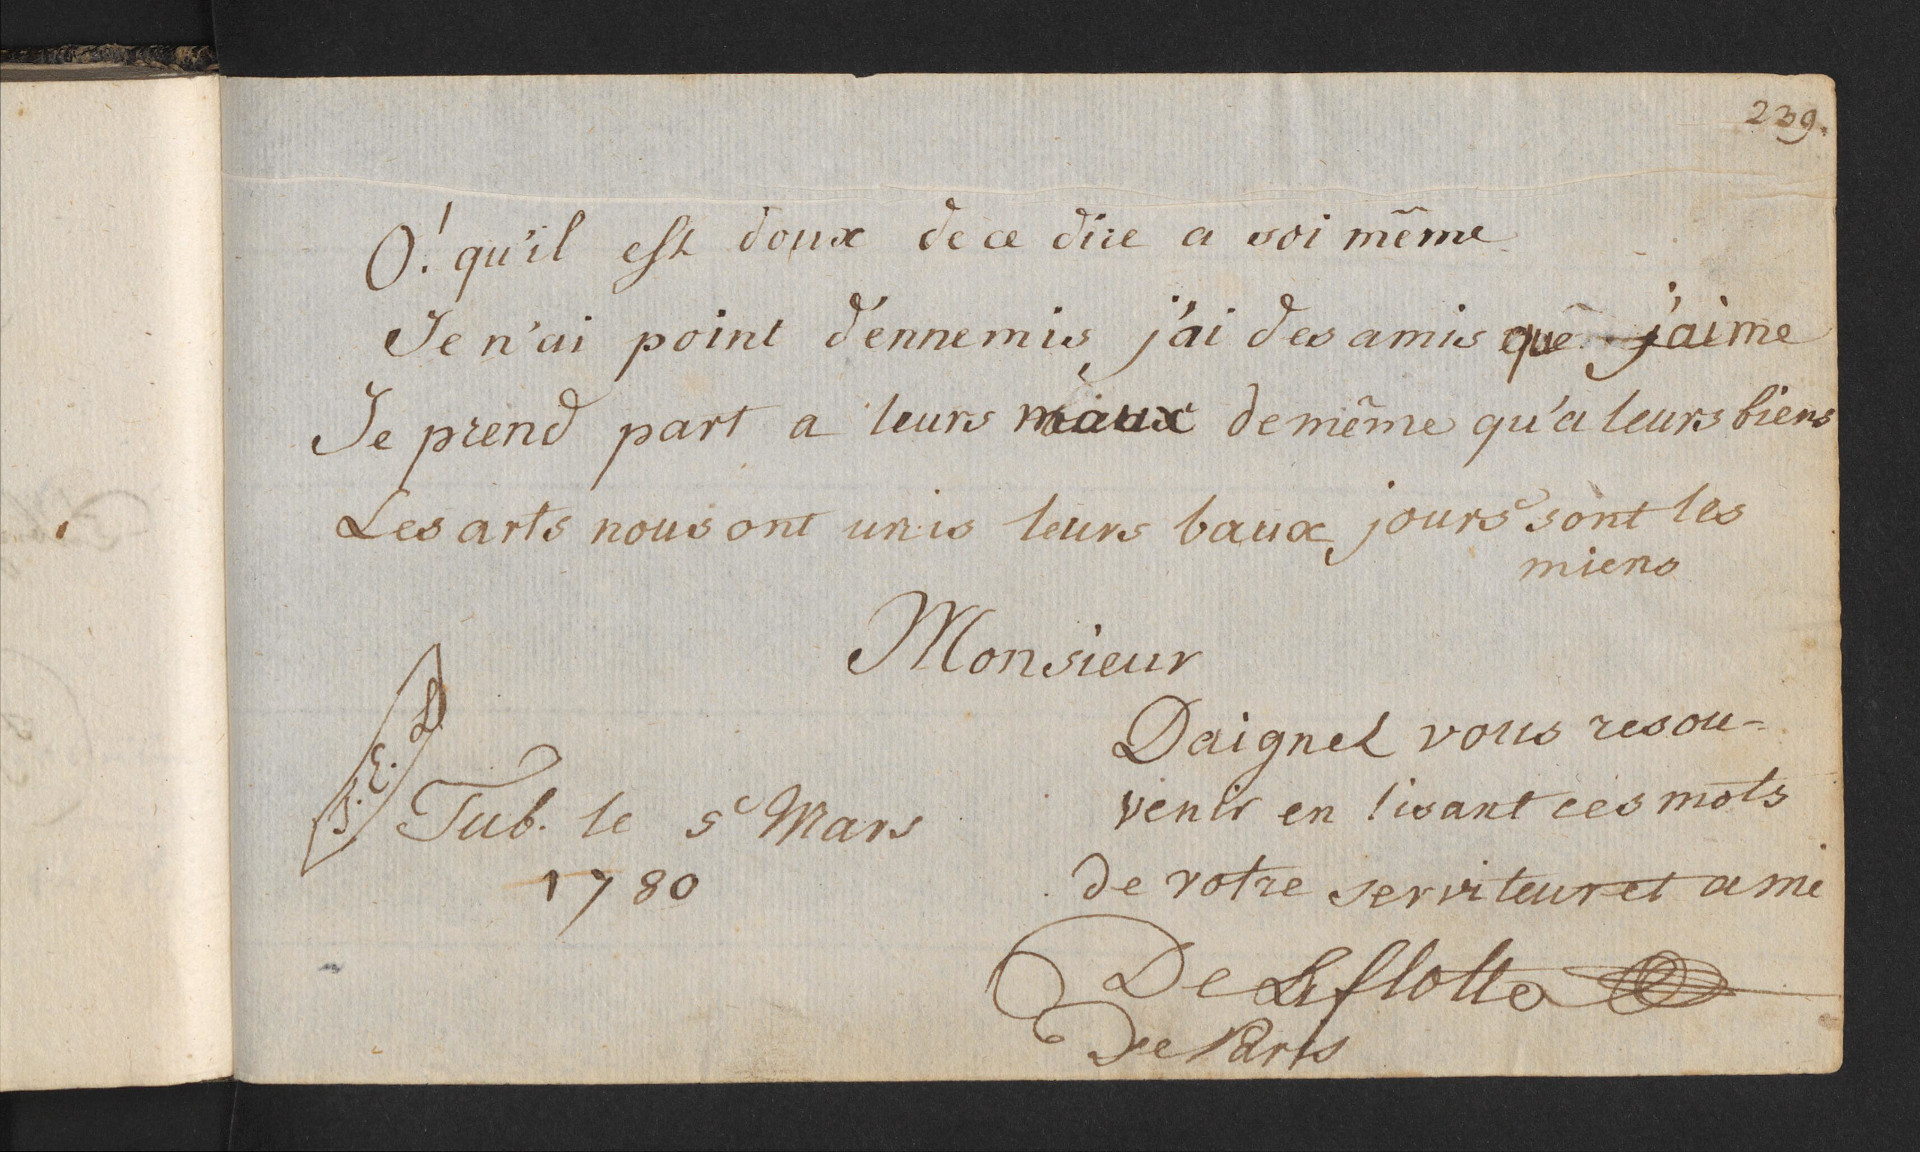 239.
O! qu'il est doux de ce dire a soi même
Je n'ai point d'ennemis, j'ai des amis que j'aime
Je prend part a leurs maux de même qu'a leurs biens
Les arts nous ont unis leurs baux jours sont les
miens
Monsieur
Daignez vous resou-
venir en lisant ces mots
de votre serviteur et ami
De Laflotte
De Paris
J. E. D.
Tub. le 5e Mars
1780